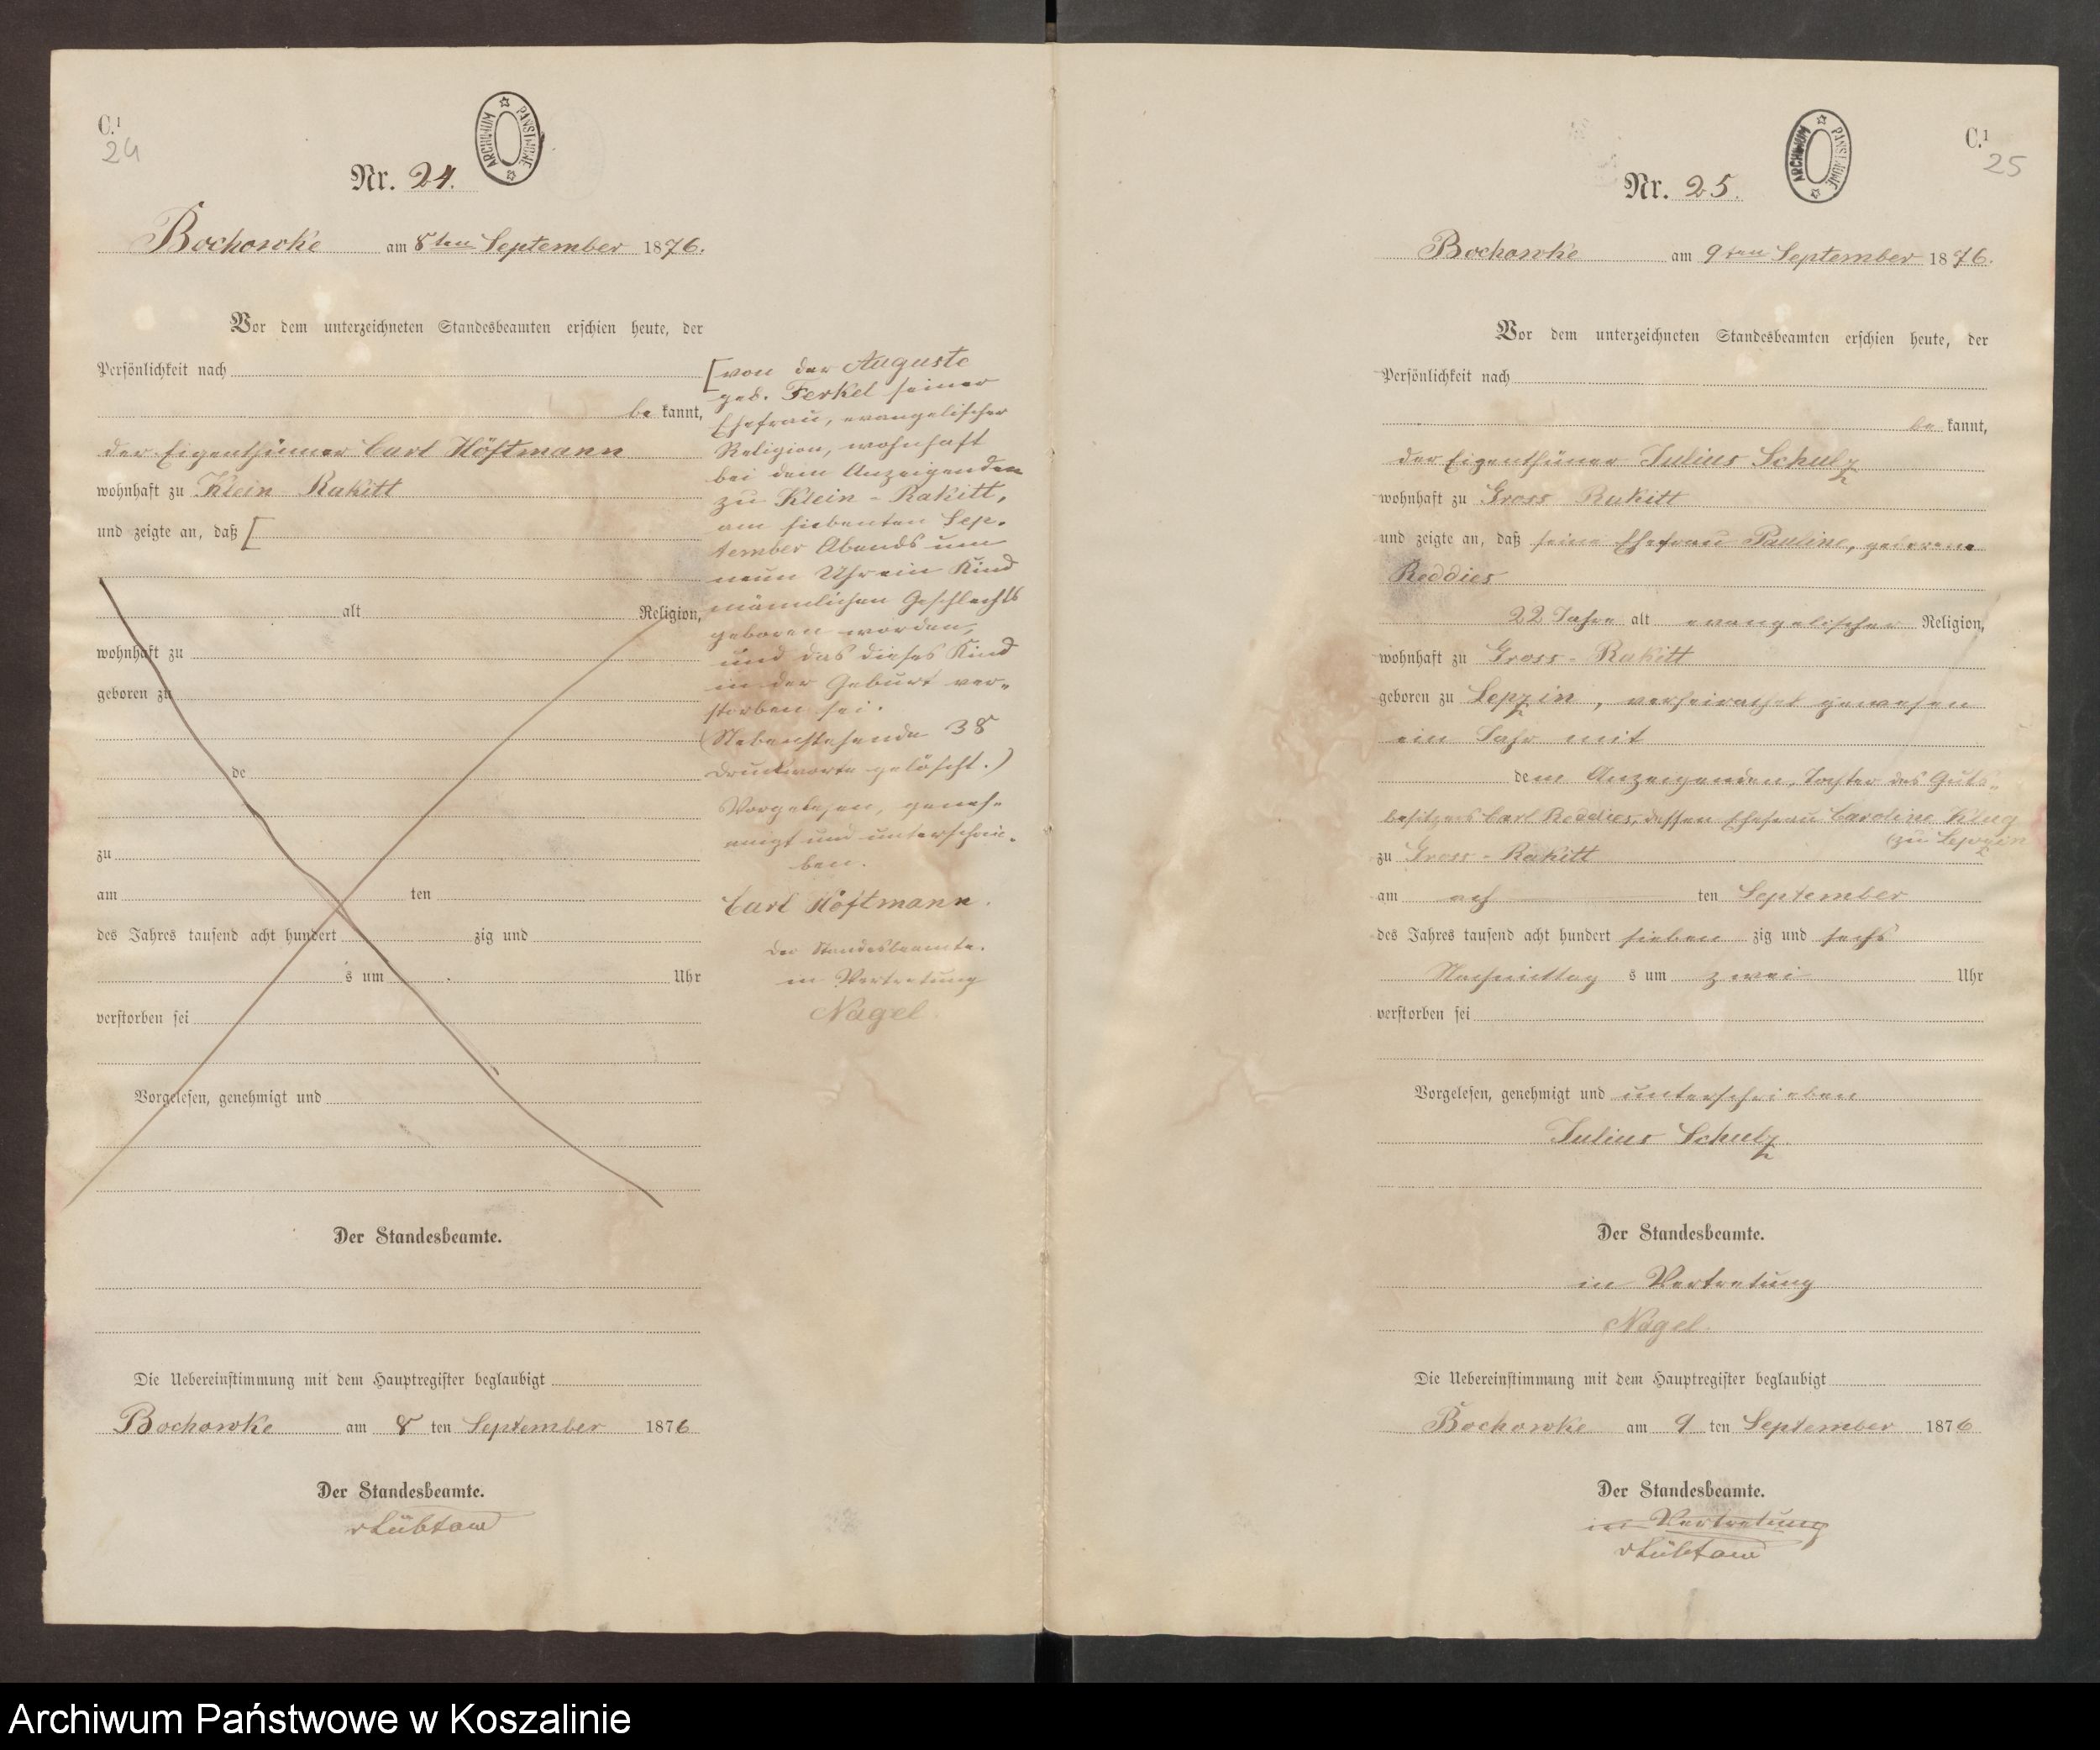 C.¹
24
ARCHIWUM PAŃSTWOWE
Nr. 24.
Bochowke am 8ten September 1876.
Vor dem unterzeichneten Standesbeamten erschien heute, der
Persönlichkeit nach
be kannt,
der Eigenthümer Carl Höftmann
wohnhaft zu Klein Rakitt
und zeigte an, daß [
alt Religion,
wohnhaft zu
geboren zu
de
zu
am ten
des Jahres tausend acht hundert zig und
s um Uhr
verstorben sei
Vorgelesen, genehmigt und
Der Standesbeamte.
Die Uebereinstimmung mit dem Hauptregister beglaubigt
Bochowke am 8 ten September 1876
Der Standesbeamte.
vLübtow
[von der Auguste
geb. Ferkel seiner
Ehefrau, evangelischer
Religion, wohnhaft
bei dem Anzeigenden
zu Klein-Rakitt,
am siebenten Sep-
tember Abends um
neun Uhr ein Kind
männlichen Geschlechts
geboren worden,
und das dieses Kind
in der Geburt ver-
storben sei.
(Nebenstehende 38
Druckworte gelöscht.)
Vorgelesen, geneh-
migt und unterschrie-
ben.
Carl Höftmann.
Der Standesbeamte.
in Vertretung
Nagel.
C.¹
25
ARCHIWUM PAŃSTWOWE
Nr. 25.
Bochowke am 9ten September 1876.
Vor dem unterzeichneten Standesbeamten erschien heute, der
Persönlichkeit nach
be kannt,
der Eigenthümer Julius Schulz
wohnhaft zu Gross Rakitt
und zeigte an, daß seine Ehefrau Pauline, geborene
Reddies
22 Jahre alt evangelischer Religion,
wohnhaft zu Gross-Rakitt
geboren zu Lepzin, verheirathet gewesen
ein Jahr mit
dem Anzeigenden, Tochter des Guts-
besitzers Carl Reddies, dessen Ehefrau Caroline Klug
(zu Lepzin
zu Gross-Rakitt
am ach ten September
des Jahres tausend acht hundert sieben zig und sechs
Nachmittag s um zwei Uhr
verstorben sei
Vorgelesen, genehmigt und unterschrieben
Julius Schulz
Der Standesbeamte.
in Vertretung
Nagel.
Die Uebereinstimmung mit dem Hauptregister beglaubigt
Bochowke am 9 ten September 1876
Der Standesbeamte.
in Vertretung
vLübtow
Archiwum Państwowe w Koszalinie